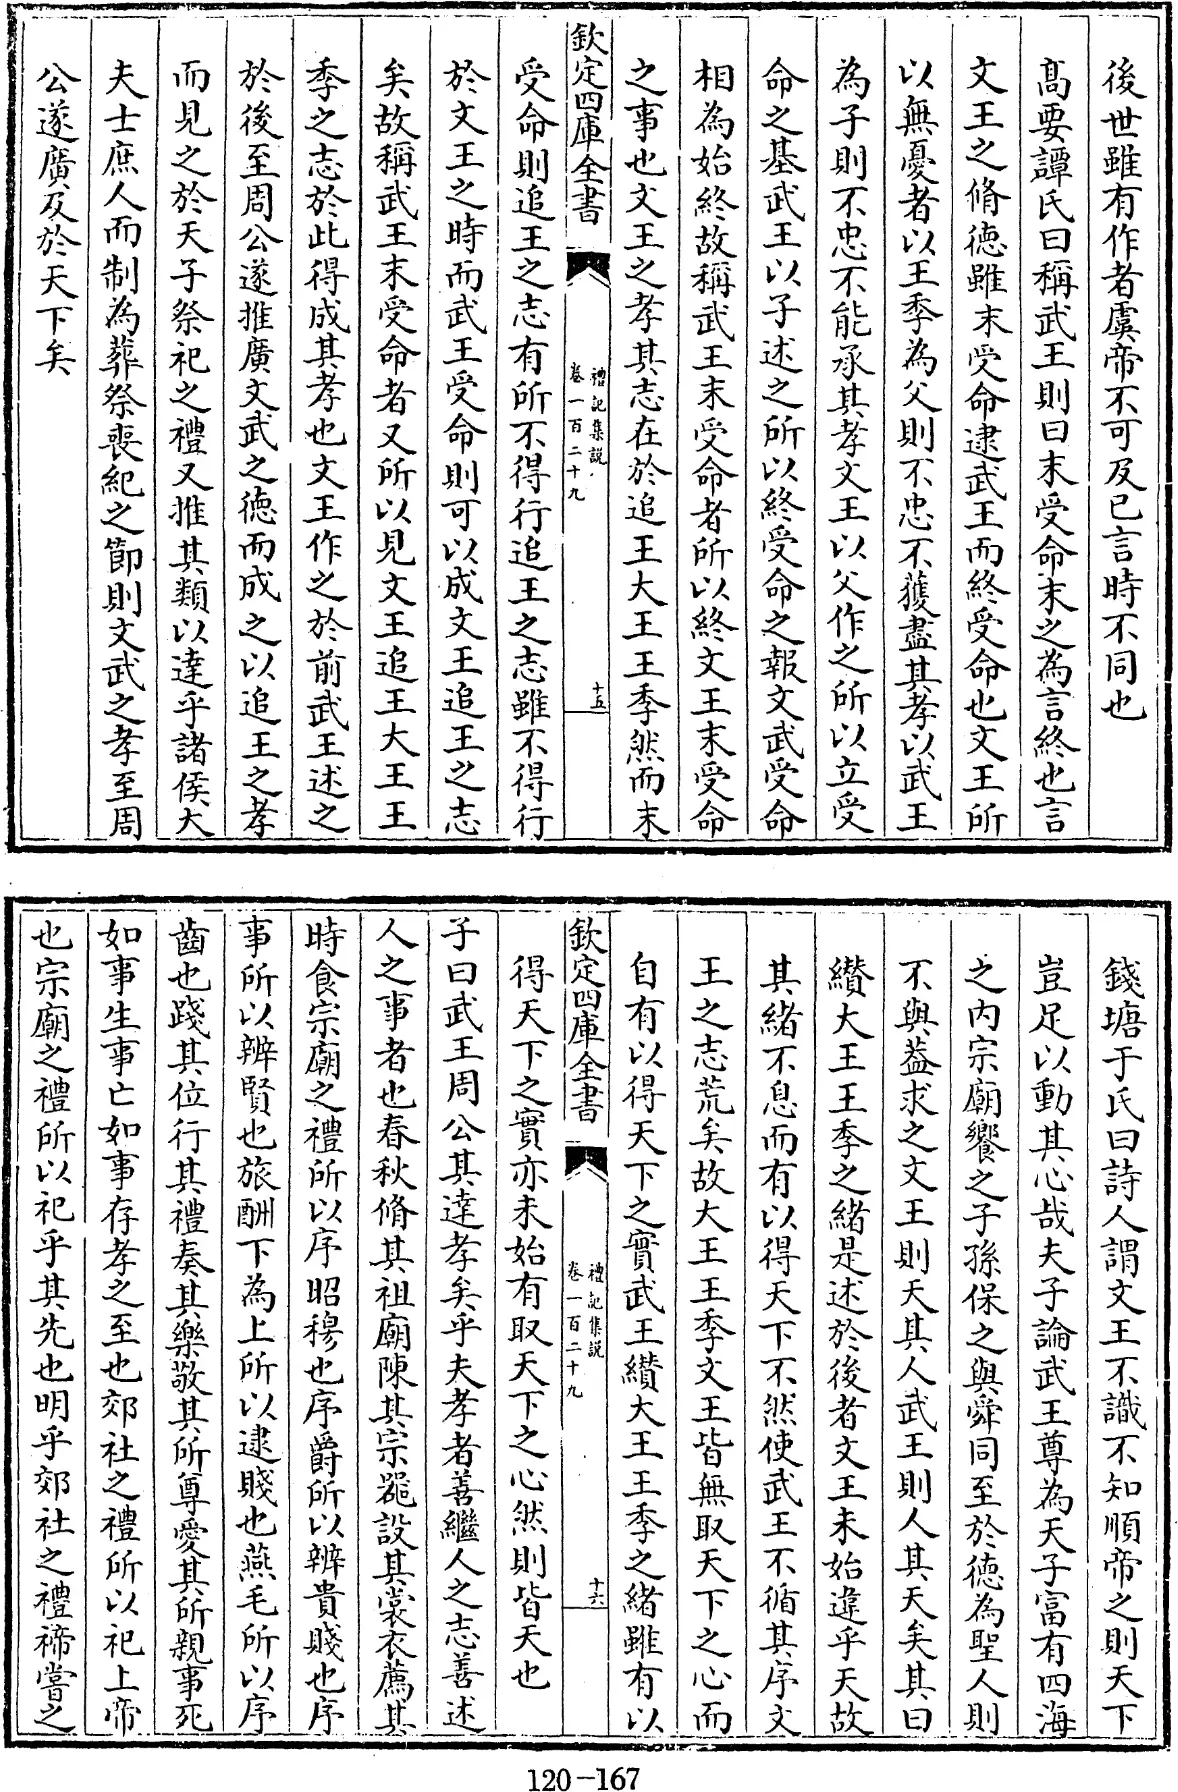 後世雖有作者虞帝不可及已言時不同也
高要譚氏曰稱武王則曰末受命末之為言終也言
文王之脩德雖末受命逮武王而終受命也文王所
以無憂者以王季為父則不忠不獲盡其孝以武王
為子則不忠不能承其孝文王以父作之所以立受
命之基武王以子述之所以終受命之報文武受命
相為始終故稱武王末受命者所以終文王末受命
之事也文王之孝其志在於追王大王王季然而末
欽定四庫全書
禮記集說
卷一百二十九
十五
受命則追王之志有所不得行追王之志雖不得行
於文王之時而武王受命則可以成文王追王之志
矣故稱武王末受命者又所以見文王追王大王王
季之志於此得成其孝也文王作之於前武王述之
於後至周公遂推廣文武之德而成之以追王之孝
而見之於天子祭祀之禮又推其類以達乎諸侯大
夫士庶人而制為葬祭喪紀之節則文武之孝至周
公遂廣及於天下矣
錢塘于氏曰詩人謂文王不識不知順帝之則天下
豈足以動其心哉夫子論武王尊為天子富有四海
之内宗廟饗之子孫保之與舜同至於德為聖人則
不與葢求之文王則天其人武王則人其天矣其曰
纘大王王季之緒是述於後者文王未始違乎天故
其緒不息而有以得天下不然使武王不循其序文
王之志荒矣故大王王季文王皆無取天下之心而
自有以得天下之實武王纘大王王季之緒雖有以
欽定四庫全書
禮記集說
卷一百二十九
十六
得天下之實亦未始有取天下之心然則皆天也
子曰武王周公其達孝矣乎夫孝者善繼人之志善述
人之事者也春秋脩其祖廟陳其宗器設其裳衣薦其
時食宗廟之禮所以序昭穆也序爵所以辨貴賤也序
事所以辨賢也旅酬下為上所以逮賤也燕毛所以序
齒也踐其位行其禮奏其樂敬其所尊愛其所親事死
如事生事亡如事存孝之至也郊社之禮所以祀上帝
也宗廟之禮所以祀乎其先也明乎郊社之禮禘嘗之
120-167